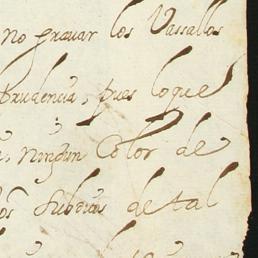 no gravar los Vassallos
Prudencia, pues loque
ningun Color de
subditos de tal